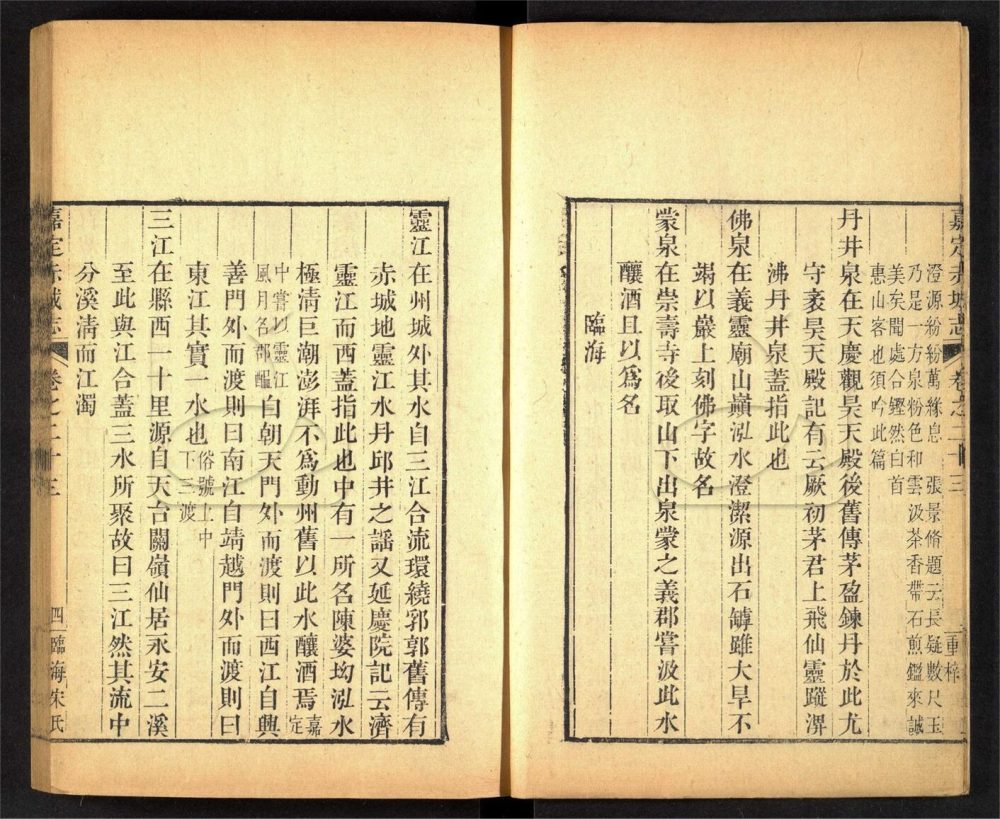 嘉定赤城志 卷之二十三 重梓
澄源紛紛萬緣息 張景脩題云長疑數尺玉
乃是一方泉粉色和雲汲茶香帶石煎鑑來誠
美矣聞處合鏗然白首
惠山客也須吟此篇
丹井泉在天慶觀昊天殿後舊傳茅盈鍊丹於此尤
守袤昊天殿記有云厥初茅君上飛仙靈蹤淠
沸丹井泉蓋指此也
佛泉在義靈廟山巔泓水澄潔源出石罅雖大旱不
竭以巖上刻佛字故名
蒙泉在崇壽寺後取山下出泉蒙之義郡嘗汲此水
釀酒且以爲名
臨海
靈江在州城外其水自三江合流環繞郛郭舊傳有
赤城地靈江水丹邱井之謠又延慶院記云濟
靈江而西蓋指此也中有一所名陳婆㘭泓水
極淸巨潮澎湃不爲動州舊以此水釀酒焉嘉定
中嘗以靈江風月名郡醞自朝天門外而渡則曰西江自興
善門外而渡則曰南江自靖越門外而渡則曰
東江其實一水也俗號上中下三渡
三江在縣西一十里源自天台關嶺仙居永安二溪
至此與江合蓋三水所聚故曰三江然其流中
分溪淸而江濁
嘉定赤城志 卷之二十三 四 臨海宋氏